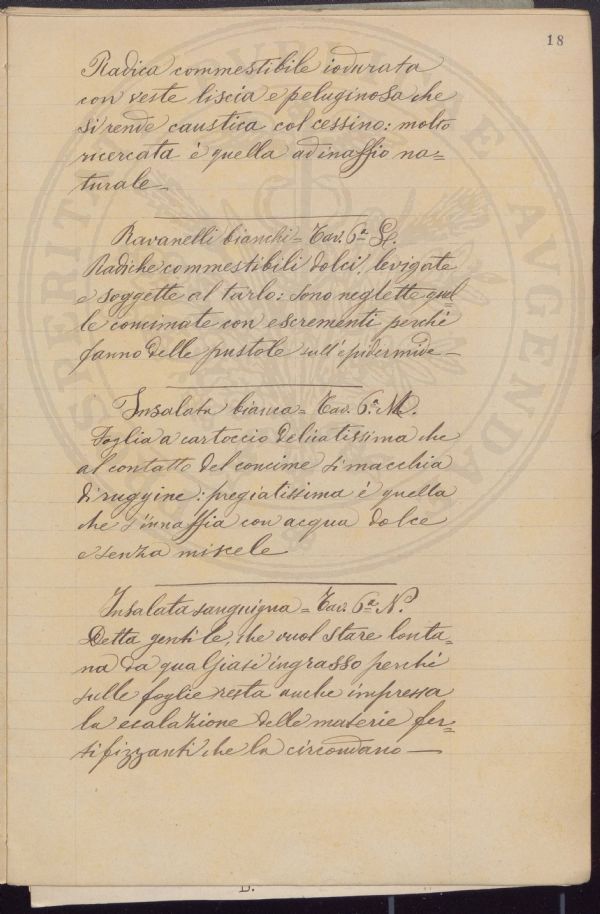 18
Radica commestibile iodurata
con veste liscia e peluginosa che
si rende caustica col cessino: molto
ricercata è quella ad inaffio na=
turale_
Ravanelli bianchi = Tav. 6ª L.
Radiche commestibili dolci, levigate
e soggette al tarlo: sono neglette quel
le concimate con escrementi perchè
fanno delle pustole sull'epidermide_
Insalata bianca = Tav. 6ª M.
Foglia a cartoccio delicatissima che
al contatto del concime si macchia
di ruggine: pregiatissima è quella
che s'innaffia con acqua dolce
e senza miscele
Insalata sanguigna = Tav. 6ª N.
Detta gentile, che vuol stare lonta=
na da qualsiasi ingrasso perchè
sulle foglie resta anche impressa
la esalazione delle materie fer=
tifizzanti che la circondano_